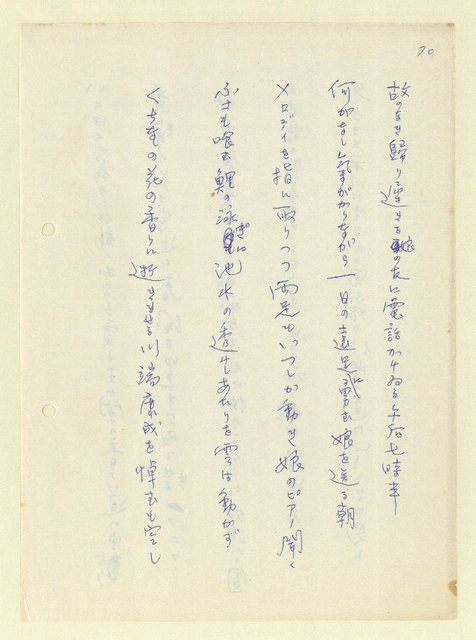 70
故のなき歸り遲き娘の友に電話かけゐる午后七時半
何がなし氣がかりながら一日の遠足に勇む娘を送る朝
メロディを指に取りつつ両足もいつしか動き娘のピアノ聞く
ふさも喰む鯉の泳ぎに池水の透せあたりを雲は動かず
くちなしの花の香りに逝きませる川端康成を悼むも空し